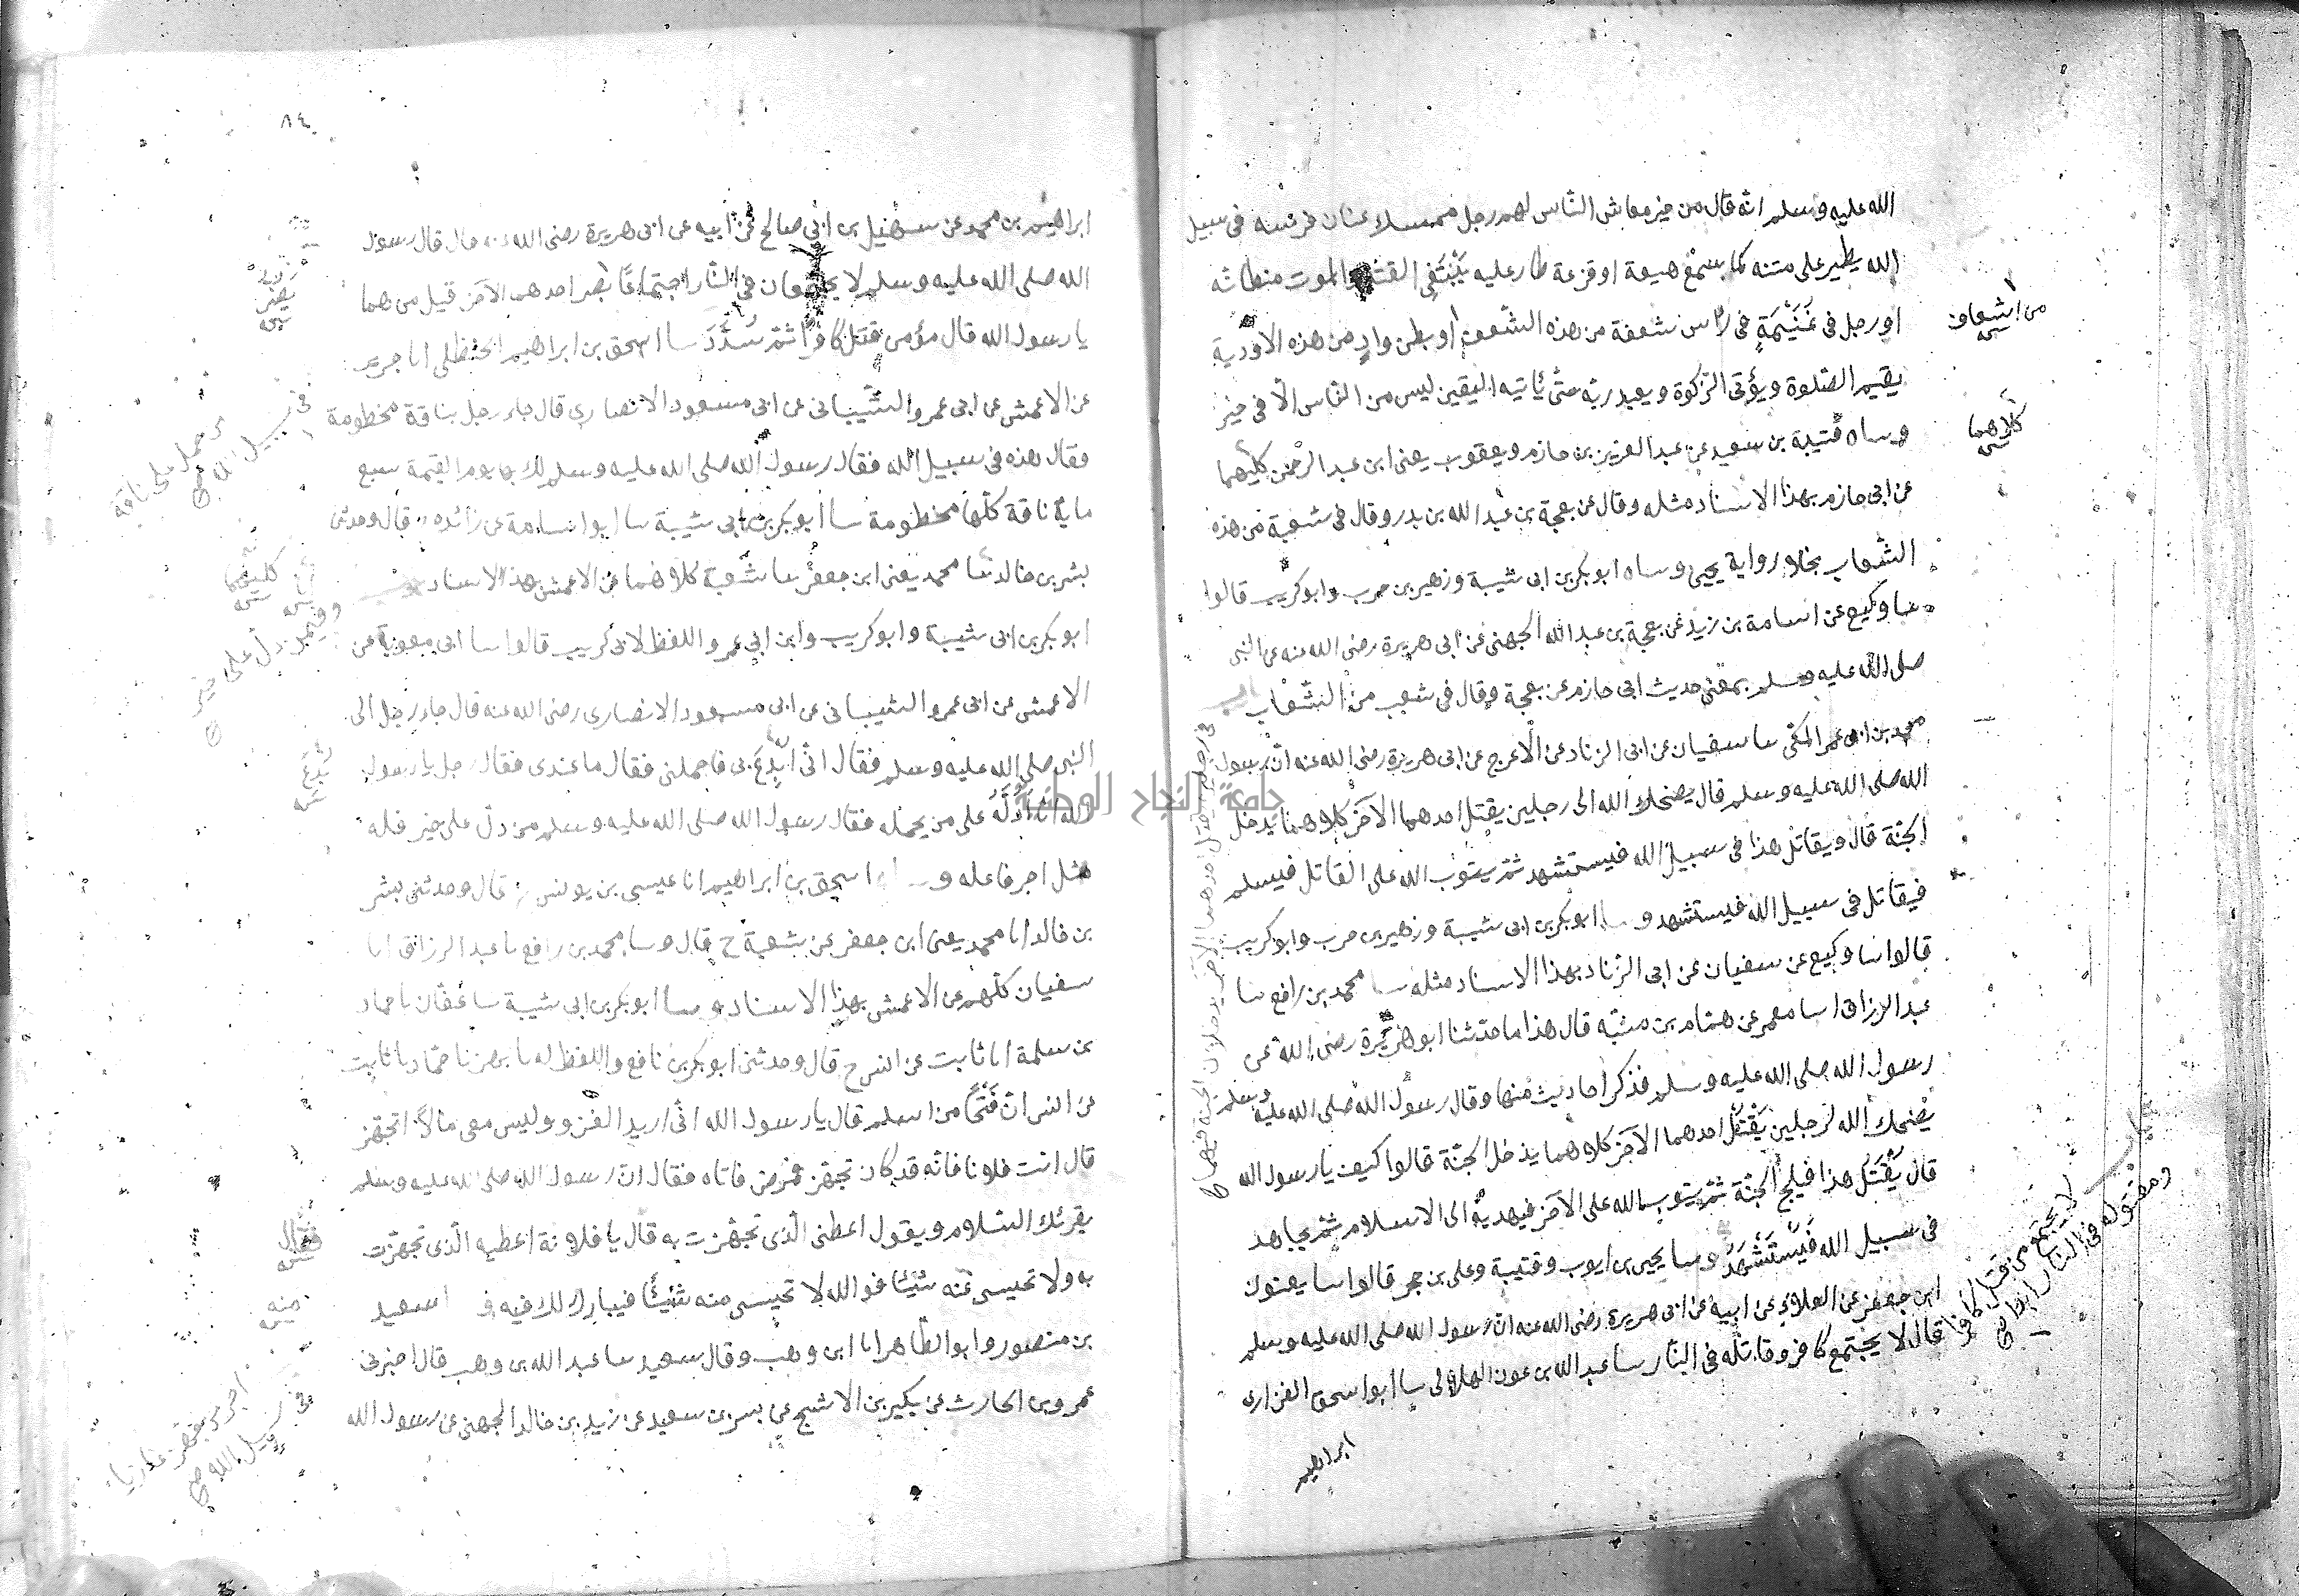 الله عليه وسلم انه قال من خير معاش الناس لهم رجل ممسك عنان فرسه في سبيل
الله يطير على متنه كلما سمع هيعة او فزعة طار عليه يبتغي القتل والموت مظانه
او رجل في غنيمة في راس شعفة من هذه الشعف او بطن واد من هذه الاودية
يقيم الصلوة ويؤتي الزكوة ويعبد ربه حتى ياتيه اليقين ليس من الناس الا في خير
وساه قتيبة بن سعيد عن عبد العزيز بن حازم ويعقوب يعني ابن عبد الرحمن كليهما
عن ابي حازم بهذا الاسناد مثله وقال عن بعجة بن عبد الله بن بدر وقال في شعبة من هذه
الشعاب بخلاف رواية يحيى وساه ابو بكر بن ابي شيبة وزهير بن حرب وابو كريب قالوا
سا وكيع عن اسامة بن زيد عن بعجة بن عبد الله الجهني عن ابي هريرة رضي الله عنه عن النبي
صلى الله عليه وسلم بمعنى حديث ابي حازم عن بعجة وقال في شعب من الشعاب
محمد بن ابي عمر المكي سا سفيان عن ابي الزناد عن الاعرج عن ابي هريرة رضي الله عنه ان رسول
الله صلى الله عليه وسلم قال يضحك الله الى رجلين يقتل احدهما الآخر كلاهما يدخل
الجنة قال ويقاتل هذا في سبيل الله فيستشهد ثم يتوب الله على القاتل فيسلم
فيقاتل في سبيل الله فيستشهد وسا ابو بكر بن ابي شيبة وزهير بن حرب وابو كريب
قالوا سا وكيع عن سفيان عن ابي الزناد بهذا الاسناد مثله سا محمد بن رافع سا
عبد الرزاق اسا معمر عن همام بن منبه قال هذا ما حدثنا ابو هريرة رضي الله عن
رسول الله صلى الله عليه وسلم فذكر احاديث منها وقال رسول الله صلى الله عليه وسلم
يضحك الله لرجلين يقتل احدهما الآخر كلاهما يدخل الجنة قالوا كيف يا رسول الله
قال يقتل هذا فيلج الجنة ثم يتوب الله على الآخر فيهديه الى الاسلام ثم يجاهد
في سبيل الله فيستشهد وسا يحيى بن ايوب وقتيبة وعلي بن حجر قالوا سا يعنون
ابن جعفر عن العلاء عن ابيه عن ابي هريرة رضي الله عنه ان رسول الله صلى الله عليه وسلم
قال لا يجتمع كافر وقاتله في النار سا عبد الله بن عون الهلالي سا ابو اسحق الفزاري
ابراهيم
كلاهما
باب
لا يجتمع من قتل كافرا
ومقتوله في النار ابدا
٨٤
ابراهيم بن محمد عن سهيل بن ابي صالح عن ابيه عن ابي هريرة رضي الله عنه قال قال رسول
الله صلى الله عليه وسلم لا يجتمعان في النار اجتماعا يضر احدهما الآخر قيل من هما
يا رسول الله قال مؤمن قتل كافرا ثم سدد سا اسحق بن ابراهيم الحنظلي انا جرير
عن الاعمش عن ابي عمرو الشيباني عن ابي مسعود الانصاري قال جاء رجل بناقة مخطومة
فقال هذه في سبيل الله فقال رسول الله صلى الله عليه وسلم لك بها يوم القيمة سبع
ماية ناقة كلها مخطومة سا ابو بكر بن ابي شيبة سا ابو اسامة عن زائدة قال وحدثني
بشر بن خالد سا محمد يعني ابن جعفر سا شعبة كلاهما عن الاعمش بهذا الاسناد
ابو بكر بن ابي شيبة وابو كريب وابن ابي عمر واللفظ لابي كريب قالوا سا ابي معوية عن
الاعمش عن ابي عمرو الشيباني عن ابي مسعود الانصاري رضي الله عنه قال جاء رجل الى
النبي صلى الله عليه وسلم فقال اني ابدع بي فاحملني فقال ما عندي فقال رجل يا رسول
الله انا ادله على من يحمله فقال رسول الله صلى الله عليه وسلم من دل على خير فله
مثل اجر فاعله و اسحق بن ابراهيم انا عيسى بن يونس قال وحدثني بشر
بن خالد انا محمد يعني ابن جعفر عن شعبة ح قال وسا محمد بن رافع نا عبد الرزاق انا
سفيان كلهم عن الاعمش بهذا الاسناد وسا ابو بكر بن ابي شيبة سا عفان نا حماد
بن سلمة انا ثابت عن انس ح قال وحدثني ابو بكر بن نافع واللفظ له نا بهز نا حماد نا ثابت
عن انس ان فتى من اسلم قال يا رسول الله اني اريد الغزو وليس معي مالا اتجهز
قال ائت فلانا فانه قد كان تجهز فمرض فاتاه فقال ان رسول الله صلى الله عليه وسلم
يقرئك السلام ويقول اعطني الذي تجهزت به قال يا فلانة اعطيه الذي تجهزت
به ولا تحبسي عنه شيئا فوالله لا تحبسي منه شيئا فيبارك لك فيه و سعيد
بن منصور وابو الطاهر انا ابن وهب وقال سعيد سا عبد الله بن وهب قال اخبرني
عمرو بن الحارث عن بكير بن الاشج عن بسر بن سعيد عن زيد بن خالد الجهني عن رسول الله
في سبيل الله
كليهما
وفيمن دل على خير
بدع
فقال
منه
في سبيل الله
جامعة النجاح الوطنية